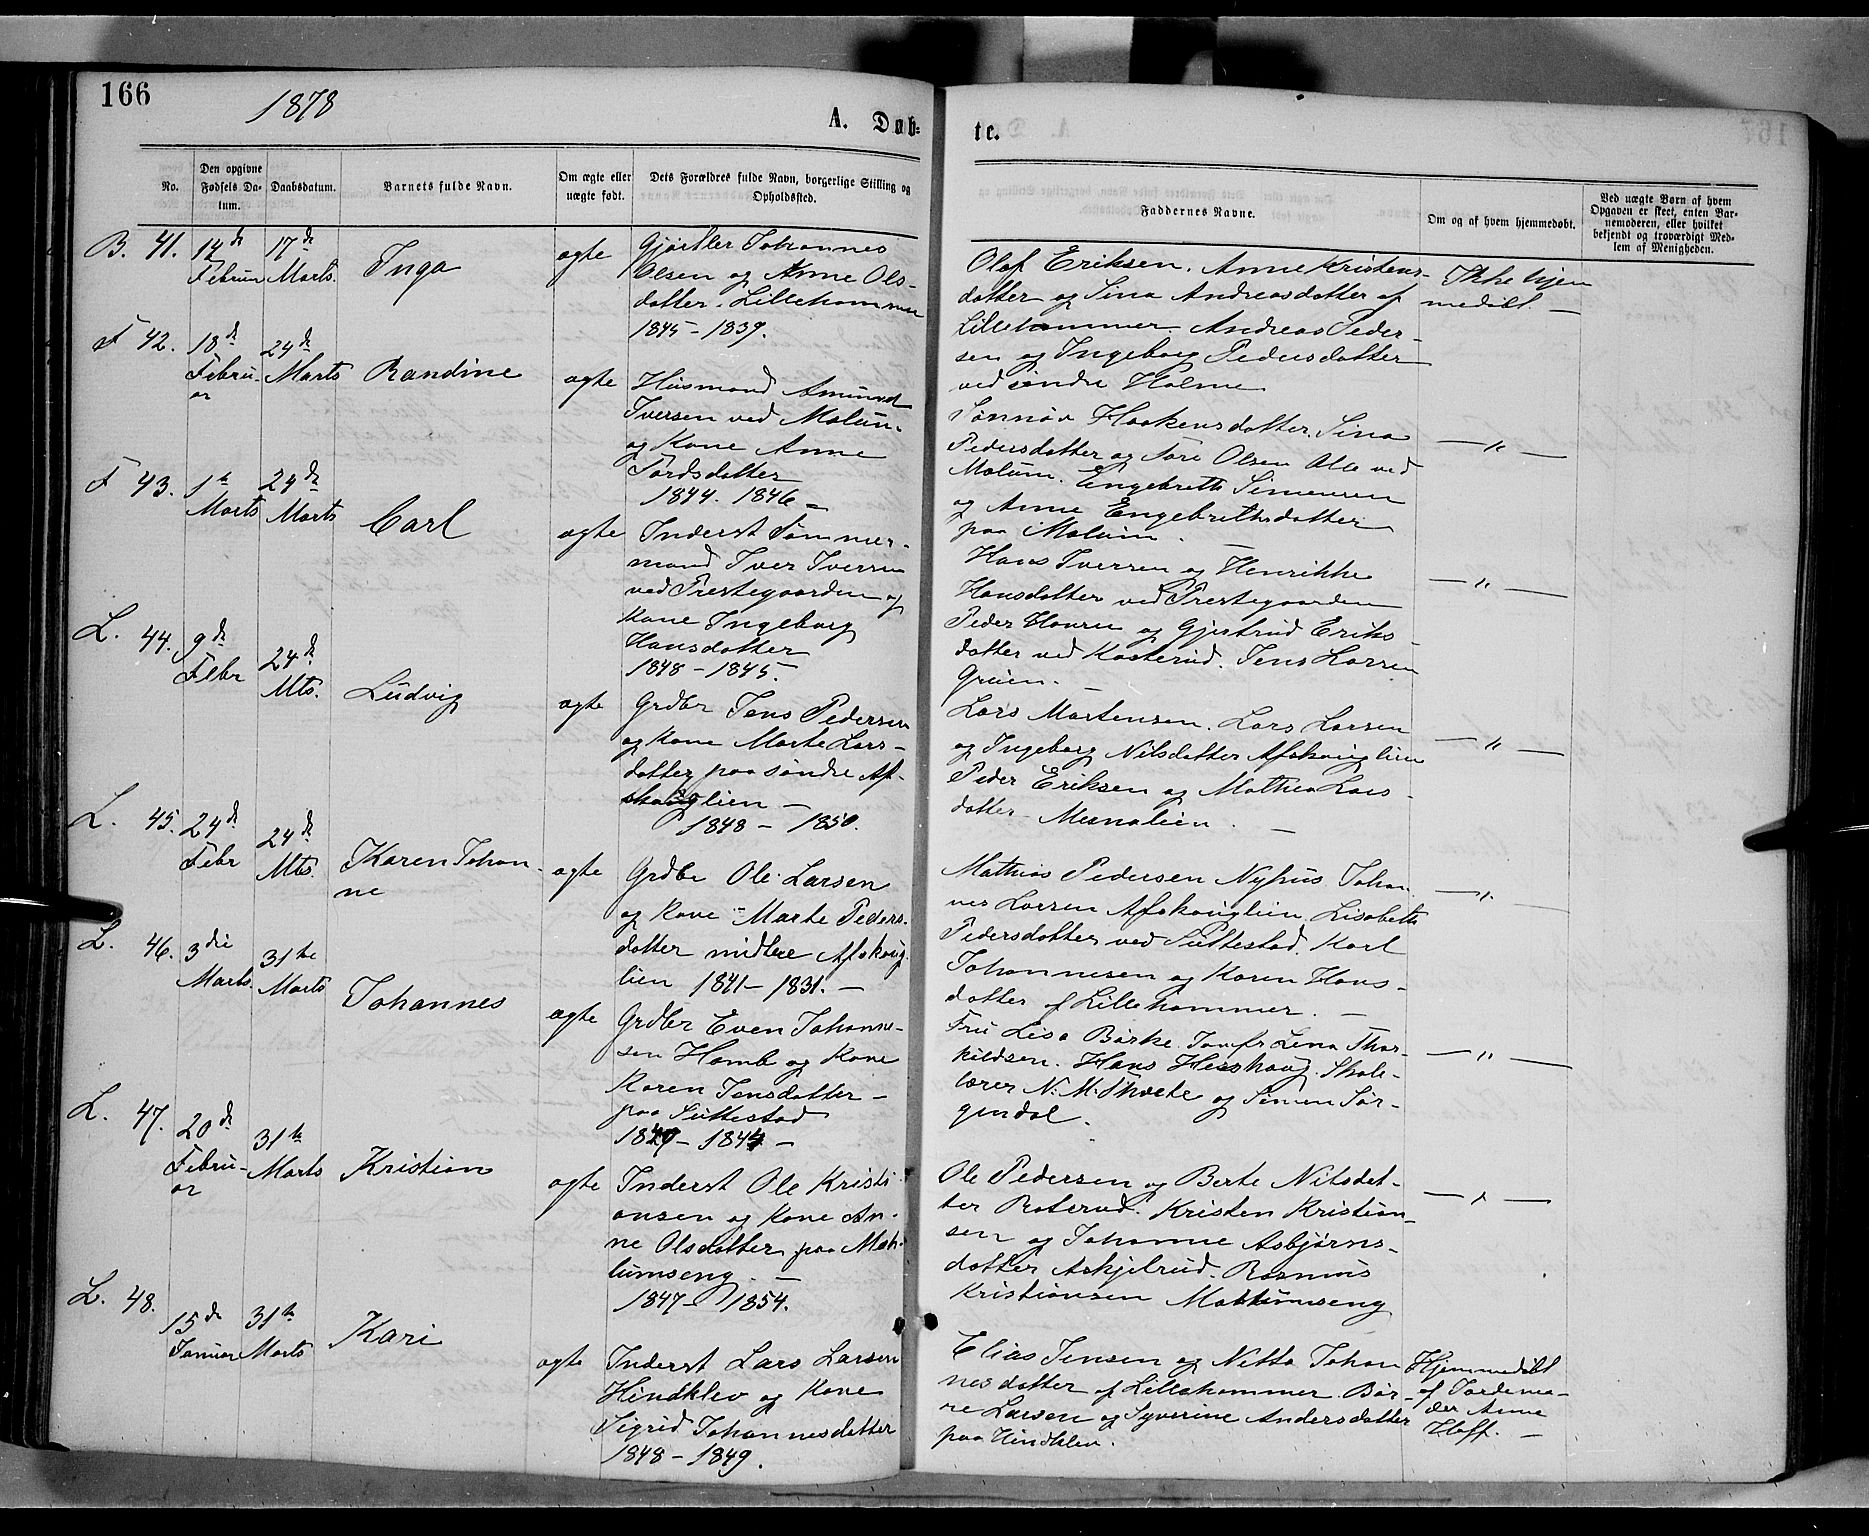 166
1878
A. Døb-
te.
No.
Den opgivne Fødsels Da-tum.
Daabsdatum.
Barnets fulde Navn.
Om ægte eller uægte født.
Dets Forældres fulde Navn, borgerlige Stilling og Opholdssted.
Faddernes Navne.
Om og af hvem hjemmedøbt.
Ved uægte Børn af hvem Opgaven er skeet, enten Bar-nemoderen, eller hvilket bekjendt og troværdigt Med-lem af Menigheden.
B. 41.
14de Februar
17de Marts.
Inga
ægte
Gjørtler Johannes
Olsen og Anne Ols-
datter. Lillehammer
1845 - 1839.
Olaf Eriksen. Anne Kristens-
datter og Sina Andreasdatter af
Lillehammer. Andreas Peder-
sen og Ingeborg Pedersdatter
ved søndre Holme
Ikke hjem
medøbt. —
F 42.
18de Febru-ar
24de Marts
Randine
ægte
Husmand Amund
Iversen ved Molum
og Kone Anne
Tordsdatter
1844. 1846 —
Sønnøv Haakensdatter. Sina
Pedersdatter og Tore Olsen Alle ved
Molum. Engebreth Simensen
og Anne Engebrethsdatter
paa Molum. —
— " —
F 43.
1te Marts
24de Marts
Carl
ægte
Inderst Tømmer-
mand Iver Iversen
ved Prestegaarden og
Kone Ingeborg
Hansdatter
1848 - 1845 -
Hans Iversen og Henrikke
Hansdatter ved Prestegaarden
Peder Hansen og Gjertrud Eriks-
datter ved Kasterud. Jens Larsen
— " —
L. 44.
9de Febr
24de Mts.
Ludvig
ægte
Grdbr Jens Pedersen
og Kone Marte Lars-
datter paa søndre Af-
skouglien —
1848 - 1850.
Lars Martensen. Lars Larsen
og Ingeborg Nilsdatter Afskouglien
Peder Eriksen og Mathea Lars-
datter - Mesnalien. —
— " —
L. 45.
24de Febr
24de Mts.
Karen Johan-
ne
ægte
Grdbr Ole Larsen
og Kone - Marte Peders-
datter midtre Afskoug-
lien 1841 - 1831. —
Mathias Pedersen Nyhus Johan-
nes Larsen Afskouglien. Lisabeth
Pedersdatter ved Suttestad. Karl
Johannesen og Karen Hans-
datter af Lillehammer. —
— " .
L. 46.
3die Marts.
31te Marts
Johannes
ægte
Grdbr Even Johanne-
sen Homb og Kone
Karen Jensdatter -
paa Suttestad
- 1844 -
Fru Lisa Børke. Jomfr Lena Thor-
kildsen. Hans Heeshaug. Skole-
lærer N. M. Skvete og Simen Sør-
gendal.
— " —
L. 47.
20de Febru-ar
31te Marts
Kristian
ægte
Inderst Ole Kristi-
ansen og Kone An-
ne Olsdatter paa Moh-
lumseng. —
1847 - 1854.
Ole Pedersen og Berte Nilsdat-
ter Roterud. Kristen Kristian-
sen og Johanne Asbjørns-
datter Askjelrud. Rasmus
Kristiansen Mohlumseng
— " —
L. 48.
15de Januar
31te Marts
Kari
ægte
Inderst Lars Larsen
Hindklev og Kone
Sigrid Johannesdatter
1848 - 1849.
Elias Jensen og Netta Johan
nesdatter af Lillehammer. Bør-
re Larsen og Syverine Andersdatter
paa Hindklev.
Hjemmedøbt
af Jordemo-
der Anne
Hoff. —